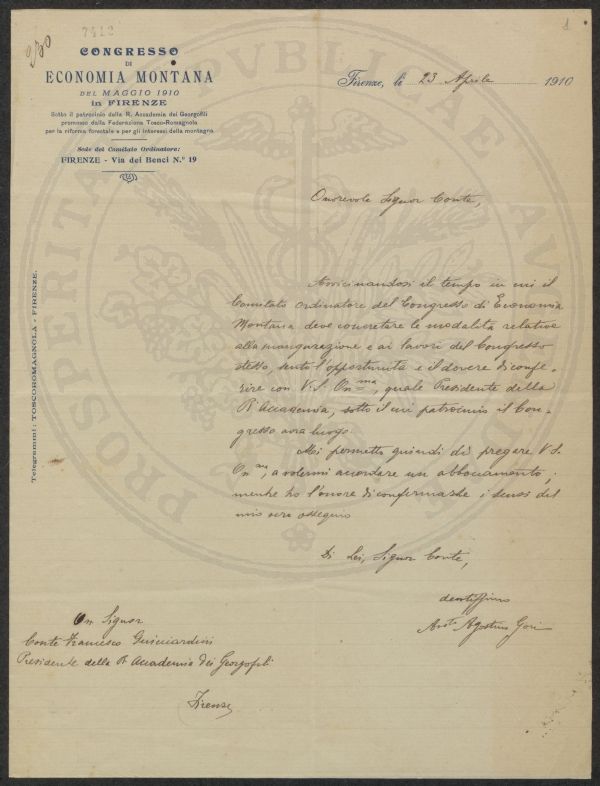 230
7412
1
CONGRESSO
DI
ECONOMIA MONTANA
DEL MAGGIO 1910
in FIRENZE
Sotto il patrocinio della R. Accademia dei Georgofili
promosso dalla Federazione Tosco-Romagnola
per la riforma forestale e per gli interessi della montagna
Sede del Comitato Ordinatore:
FIRENZE - Via dei Benci N.º 19
Firenze, li 23 Aprile 1910
Onorevole Signor Conte,
Avvicinandosi il tempo in cui il
Comitato ordinatore del Congresso di Economia
Montana deve concretare le modalità relative
alla inaugurazione e ai lavori del Congresso
stesso, sento l'opportunità e il dovere di confe-
rire con V. S. On.ma, quale Presidente della
R. Accademia, sotto il cui patrocinio il Con-
gresso avrà luogo.
Mi permetto quindi di pregare V. S.
On.ma, a volermi accordare un abboccamento,
mentre ho l'onore di confermarle i sensi del
mio vero ossequio
Di Lei, Signor Conte,
devotissimo
Agostino Gori
On. Signor
Conte Francesco Guicciardini
Presidente della R. Accademia dei Georgofili
Firenze
Telegrammi: TOSCOROMAGNOLA - FIRENZE.
PROSPERITA PUBLICAE AU